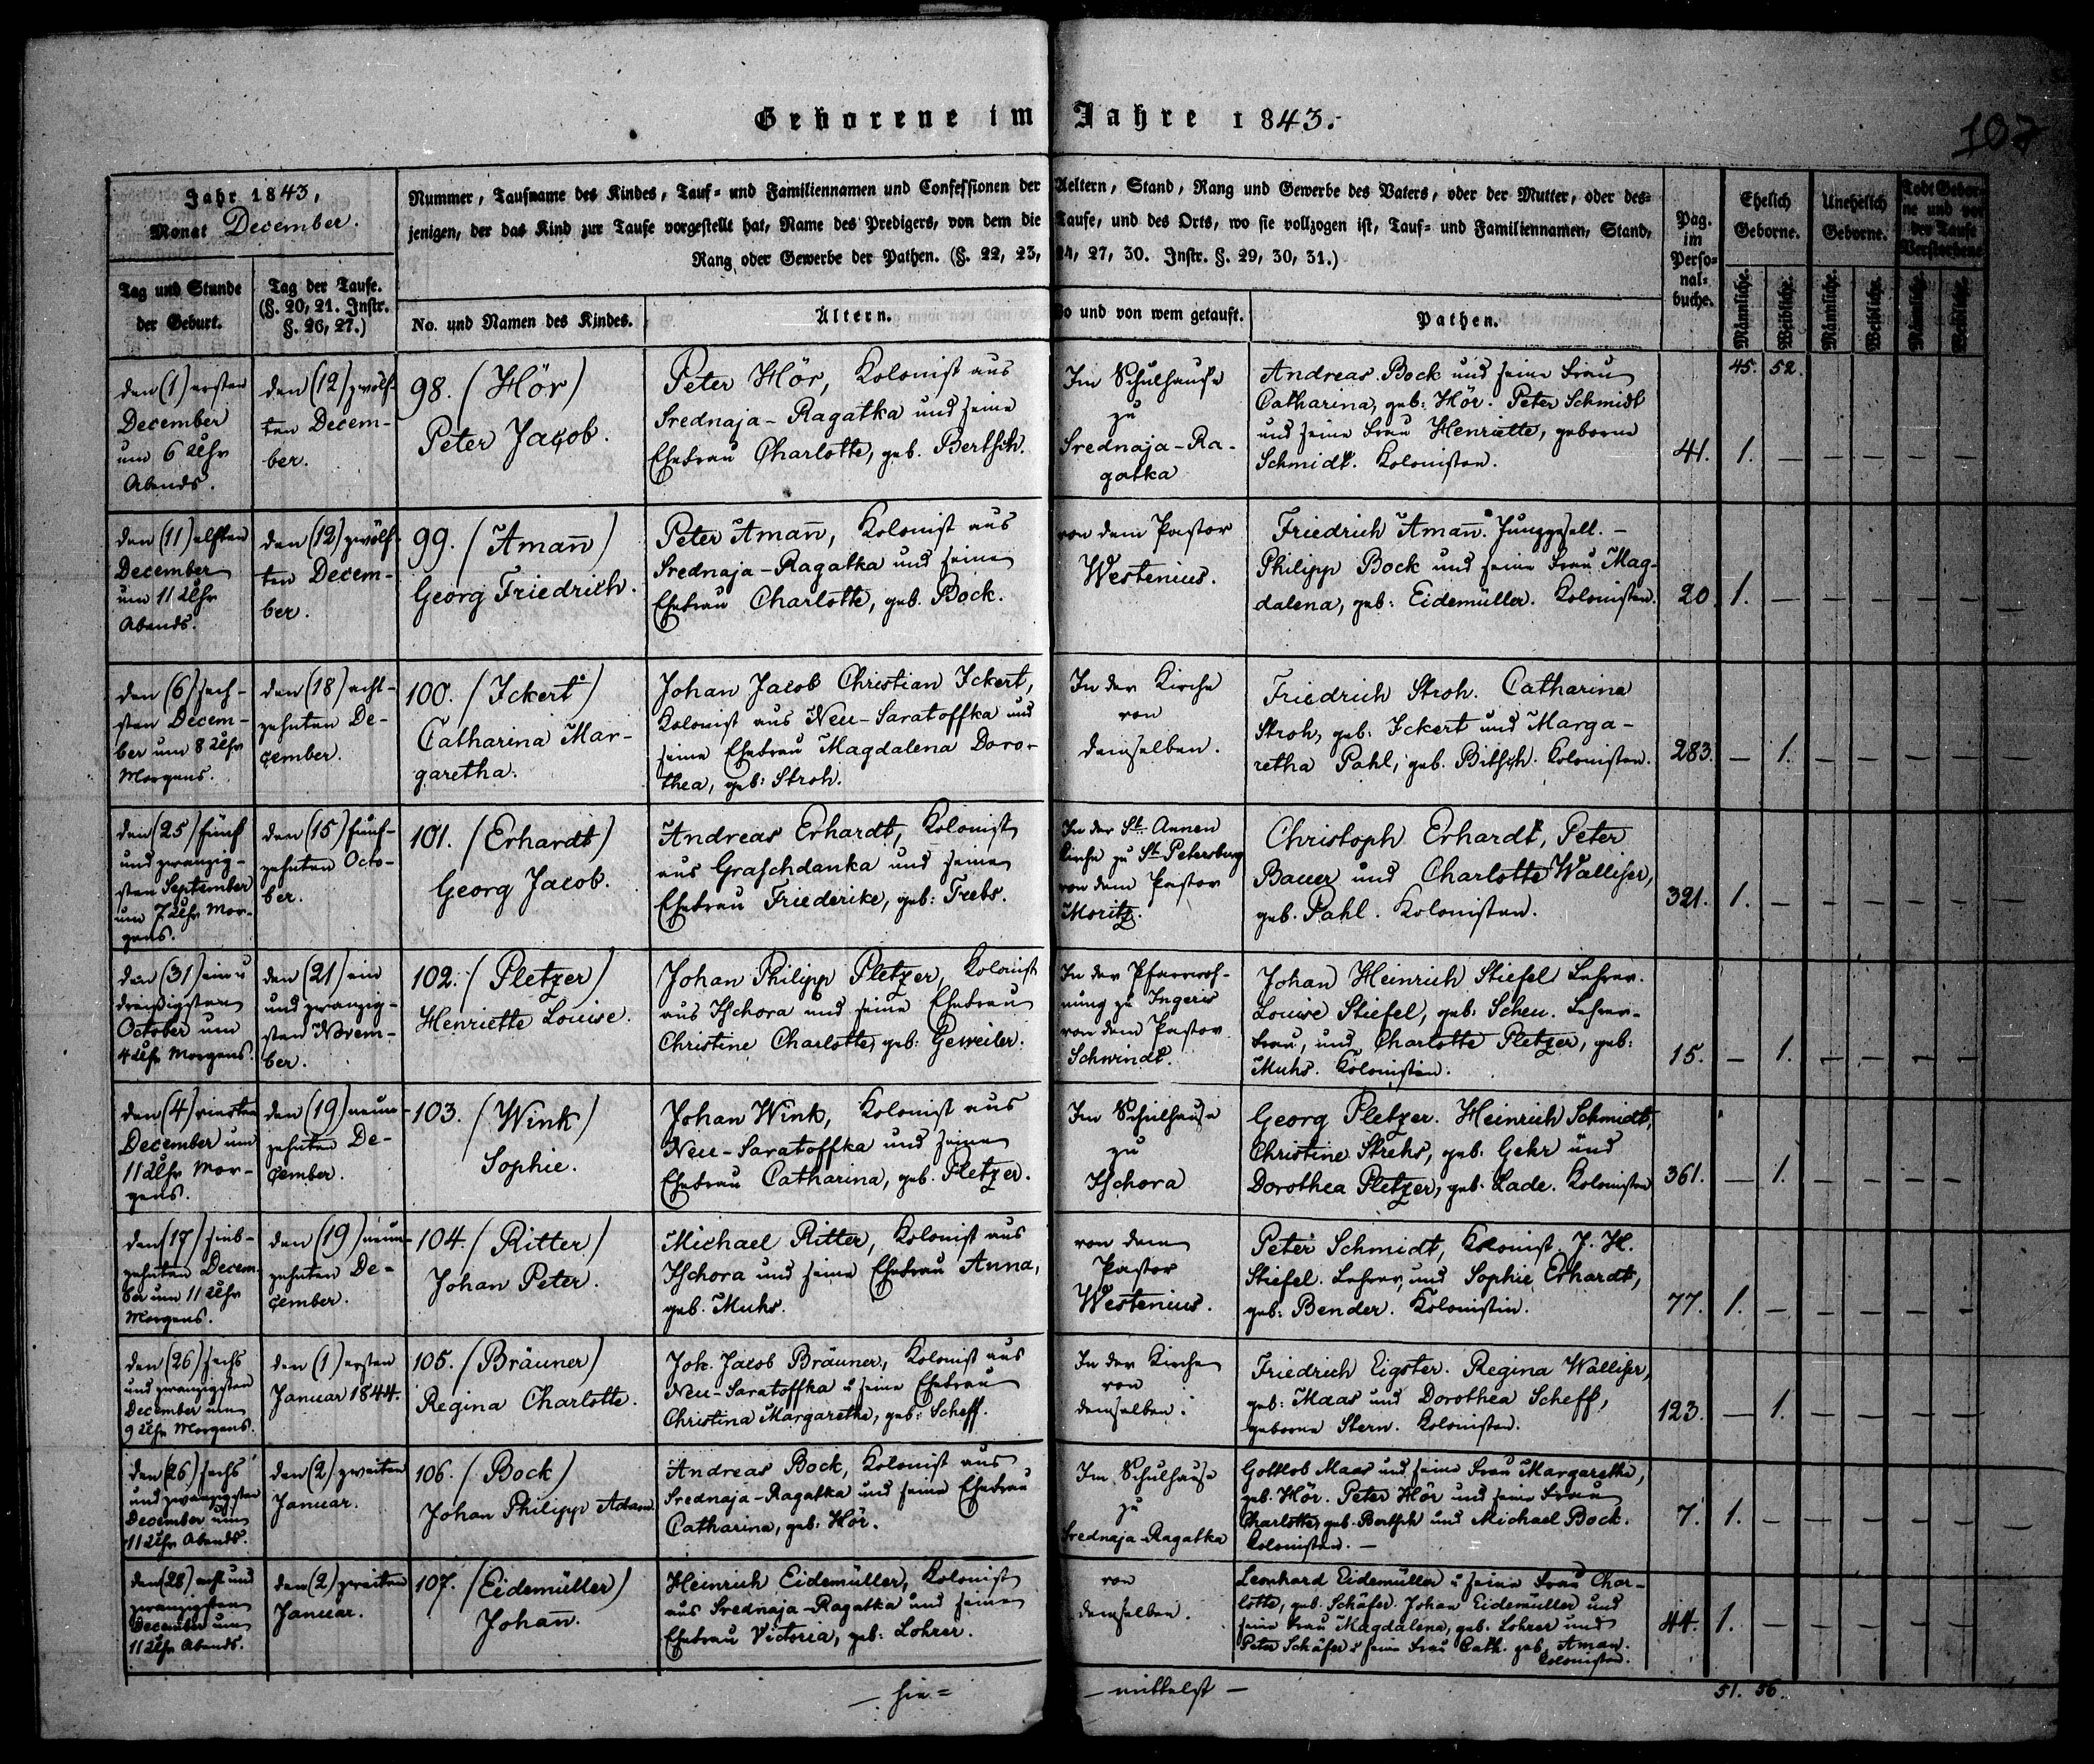 Geborene im Jahre 1843.
107
Jahr 1843,
Monat December.
Nummer, Taufname des Kindes, Tauf- und Familiennamen und Confessionen der Aeltern, Stand, Rang und Gewerbe des Vaters, oder der Mutter, oder des-
jenigen, der das Kind zur Taufe vorgestellt hat, Name des Predigers, von dem die Taufe, und des Orts, wo sie vollzogen ist, Tauf- und Familiennamen, Stand,
Rang oder Gewerbe der Pathen. (§. 22, 23, 24, 27, 30. Instr. §. 29, 30, 31.)
Pag.
im
Perso-
nal-
buche.
Ehelich
Geborne.
Unehelich
Geborne.
Todt Gebor-
ne und vor
der Taufe
Verstorbene
Tag und Stunde
der Geburt.
Tag der Taufe.
(§. 20, 21. Instr.
§. 26, 27.)
No. und Namen des Kindes.
Ältern.
Wo und von wem getauft.
Pathen.
Männliche.
Weibliche.
Männliche.
Weibliche.
Männliche.
Weibliche.
45. 52.
den (1) ersten
December
um 6 Uhr
Abends.
den (12) zwölf-
ten Decem-
ber.
98. (Hör)
Peter Jacob.
Peter Hör, Kolonist aus
Srednaja-Ragatka und seine
Ehefrau Charlotte, geb. Bertsch.
Im Schulhause
zu
Srednaja-Ra-
gatka
Andreas Bock und seine Frau
Catharina, geb: Hör. Peter Schmidt
und seine Frau Henriette, geborne
Schmidt. Kolonisten.
41. 1. — — — — —
den (11) elften
December
um 11 Uhr
Abends.
den (12) zwölf-
ten Decem-
ber.
99. (Aman̄)
Georg Friedrich.
Peter Aman̄, Kolonist aus
Srednaja-Ragatka und seine
Ehefrau Charlotte, geb. Bock.
von dem Pastor
Westenius.
Friedrich Aman̄. Junggesell. —
Philipp Bock und seine Frau Mag-
dalena, geb: Eidemüller. Kolonisten.
20. 1. — — — — —
den (6) sech-
sten Decem-
ber um 8 Uhr
Morgens.
den (18) acht-
zehnten De-
cember.
100. (Ickert)
Catharina Mar-
garetha.
Johan Jacob Christian Ickert,
Kolonist aus Neu-Saratoffka und
seine Ehefrau Magdalena Doro-
thea, geb: Stroh.
In der Kirche
von
demselben.
Friedrich Stroh. Catharina
Stroh, geb: Ickert und Marga-
retha Pahl, geb. Bitsch. Kolonisten.
283. — 1. — — — —
den (25) fünf
und zwanzig-
sten September
um 7 Uhr Mor-
gens.
den (15) fünf-
zehnten Octo-
ber.
101. (Erhardt)
Georg Jacob.
Andreas Erhardt, Kolonist
aus Graschdanka und seine
Ehefrau Friederike, geb: Trebs.
In der St. Annen
Kirche zu St. Petersburg
von dem Pastor
Moritz.
Christoph Erhardt, Peter
Bauer und Charlotte Walliser,
geb. Pahl. Kolonisten.
321. 1. — — — — —
den (31) ein u
dreißigsten
October um
4 Uhr Morgens.
den (21) ein
und zwanzig-
sten Novem-
ber.
102. (Pletzer)
Henriette Louise.
Johan Philipp Pletzer, Kolonist
aus Ischora und seine Ehefrau
Christine Charlotte, geb: Geweiler.
In der Pfarrwoh-
nung zu Ingeris
von dem Pastor
Schwindt.
Johan Heinrich Stiefel Lehrer.
Louise Stiefel, geb: Scheu. Lehrer-
Frau, und Charlotte Pletzer, geb:
Muhs. Kolonistin.
15. — 1. — — — —
den (4) vierten
December um
11 Uhr Mor-
gens.
den (19) neun-
zehnten De-
cember.
103. (Wink)
Sophie.
Johan Wink, Kolonist aus
Neu-Saratoffka und seine
Ehefrau Catharina, geb. Pletzer.
Im Schulhause
zu
Ischora
Georg Pletzer. Heinrich Schmidt,
Christine Strehs, geb: Gehr und
Dorothea Pletzer, geb. Lade. Kolonisten
361. — 1. — — — —
den (17) sieb-
zehnten Decem-
ber um 11 Uhr
Morgens.
den (19) neun-
zehnten De-
cember.
104. (Ritter)
Johan Peter.
Michael Ritter, Kolonist aus
Ischora und seine Ehefrau Anna,
geb. Muhs.
von dem
Pastor
Westenius.
Peter Schmidt, Kolonist, J. H.
Stiefel. Lehrer, und Sophie Erhardt,
geb: Bender. Kolonistin.
77. 1. — — — — —
den (26) sechs
und zwanzigsten
December um
9 Uhr Morgens.
den (1) ersten
Januar 1844.
105. (Bräuner)
Regina Charlotte.
Joh. Jacob Bräuner, Kolonist aus
Neu-Saratoffka u seine Ehefrau
Christina Margaretha, geb: Scheff.
In der Kirche
von
demselben.
Friedrich Eigster. Regina Walliser,
geb: Maas und Dorothea Scheff,
geborne Stern. Kolonisten.
123. — 1. — — — —
den (26) sechs
und zwanzigsten
December um
11 Uhr Abends.
den (2) zweiten
Januar.
106. (Bock)
Johan Philipp Adam.
Andreas Bock, Kolonist aus
Srednaja-Ragatka und seine Ehefrau
Catharina, geb: Hör.
Im Schulhause
zu
Srednaja-Ragatka
Gottlob Maas und seine Frau Margaretha,
geb. Hör. Peter Hör und seine Frau
Charlotte, geb. Bertsch und Michael Bock.
Kolonisten. —
7. 1. — — — — —
den (28) acht und
zwanzigsten
December um
11 Uhr Abends.
den (2) zweiten
Januar.
107. (Eidemüller)
Johan̄.
Heinrich Eidemüller, Kolonist
aus Srednaja-Ragatka und seine
Ehefrau Victoria, geb: Lohrer.
von
demselben.
Leonhard Eidemüller u seine Frau Char-
lotte, geb. Schäfer. Johan Eidemüller und
seine Frau Magdalena, geb. Lohrer und
Peter Schäfer u seine Frau Cath. geb. Aman.
Kolonisten.
44. 1. — — — — —
— hie =
— mittelst —
51. 56.